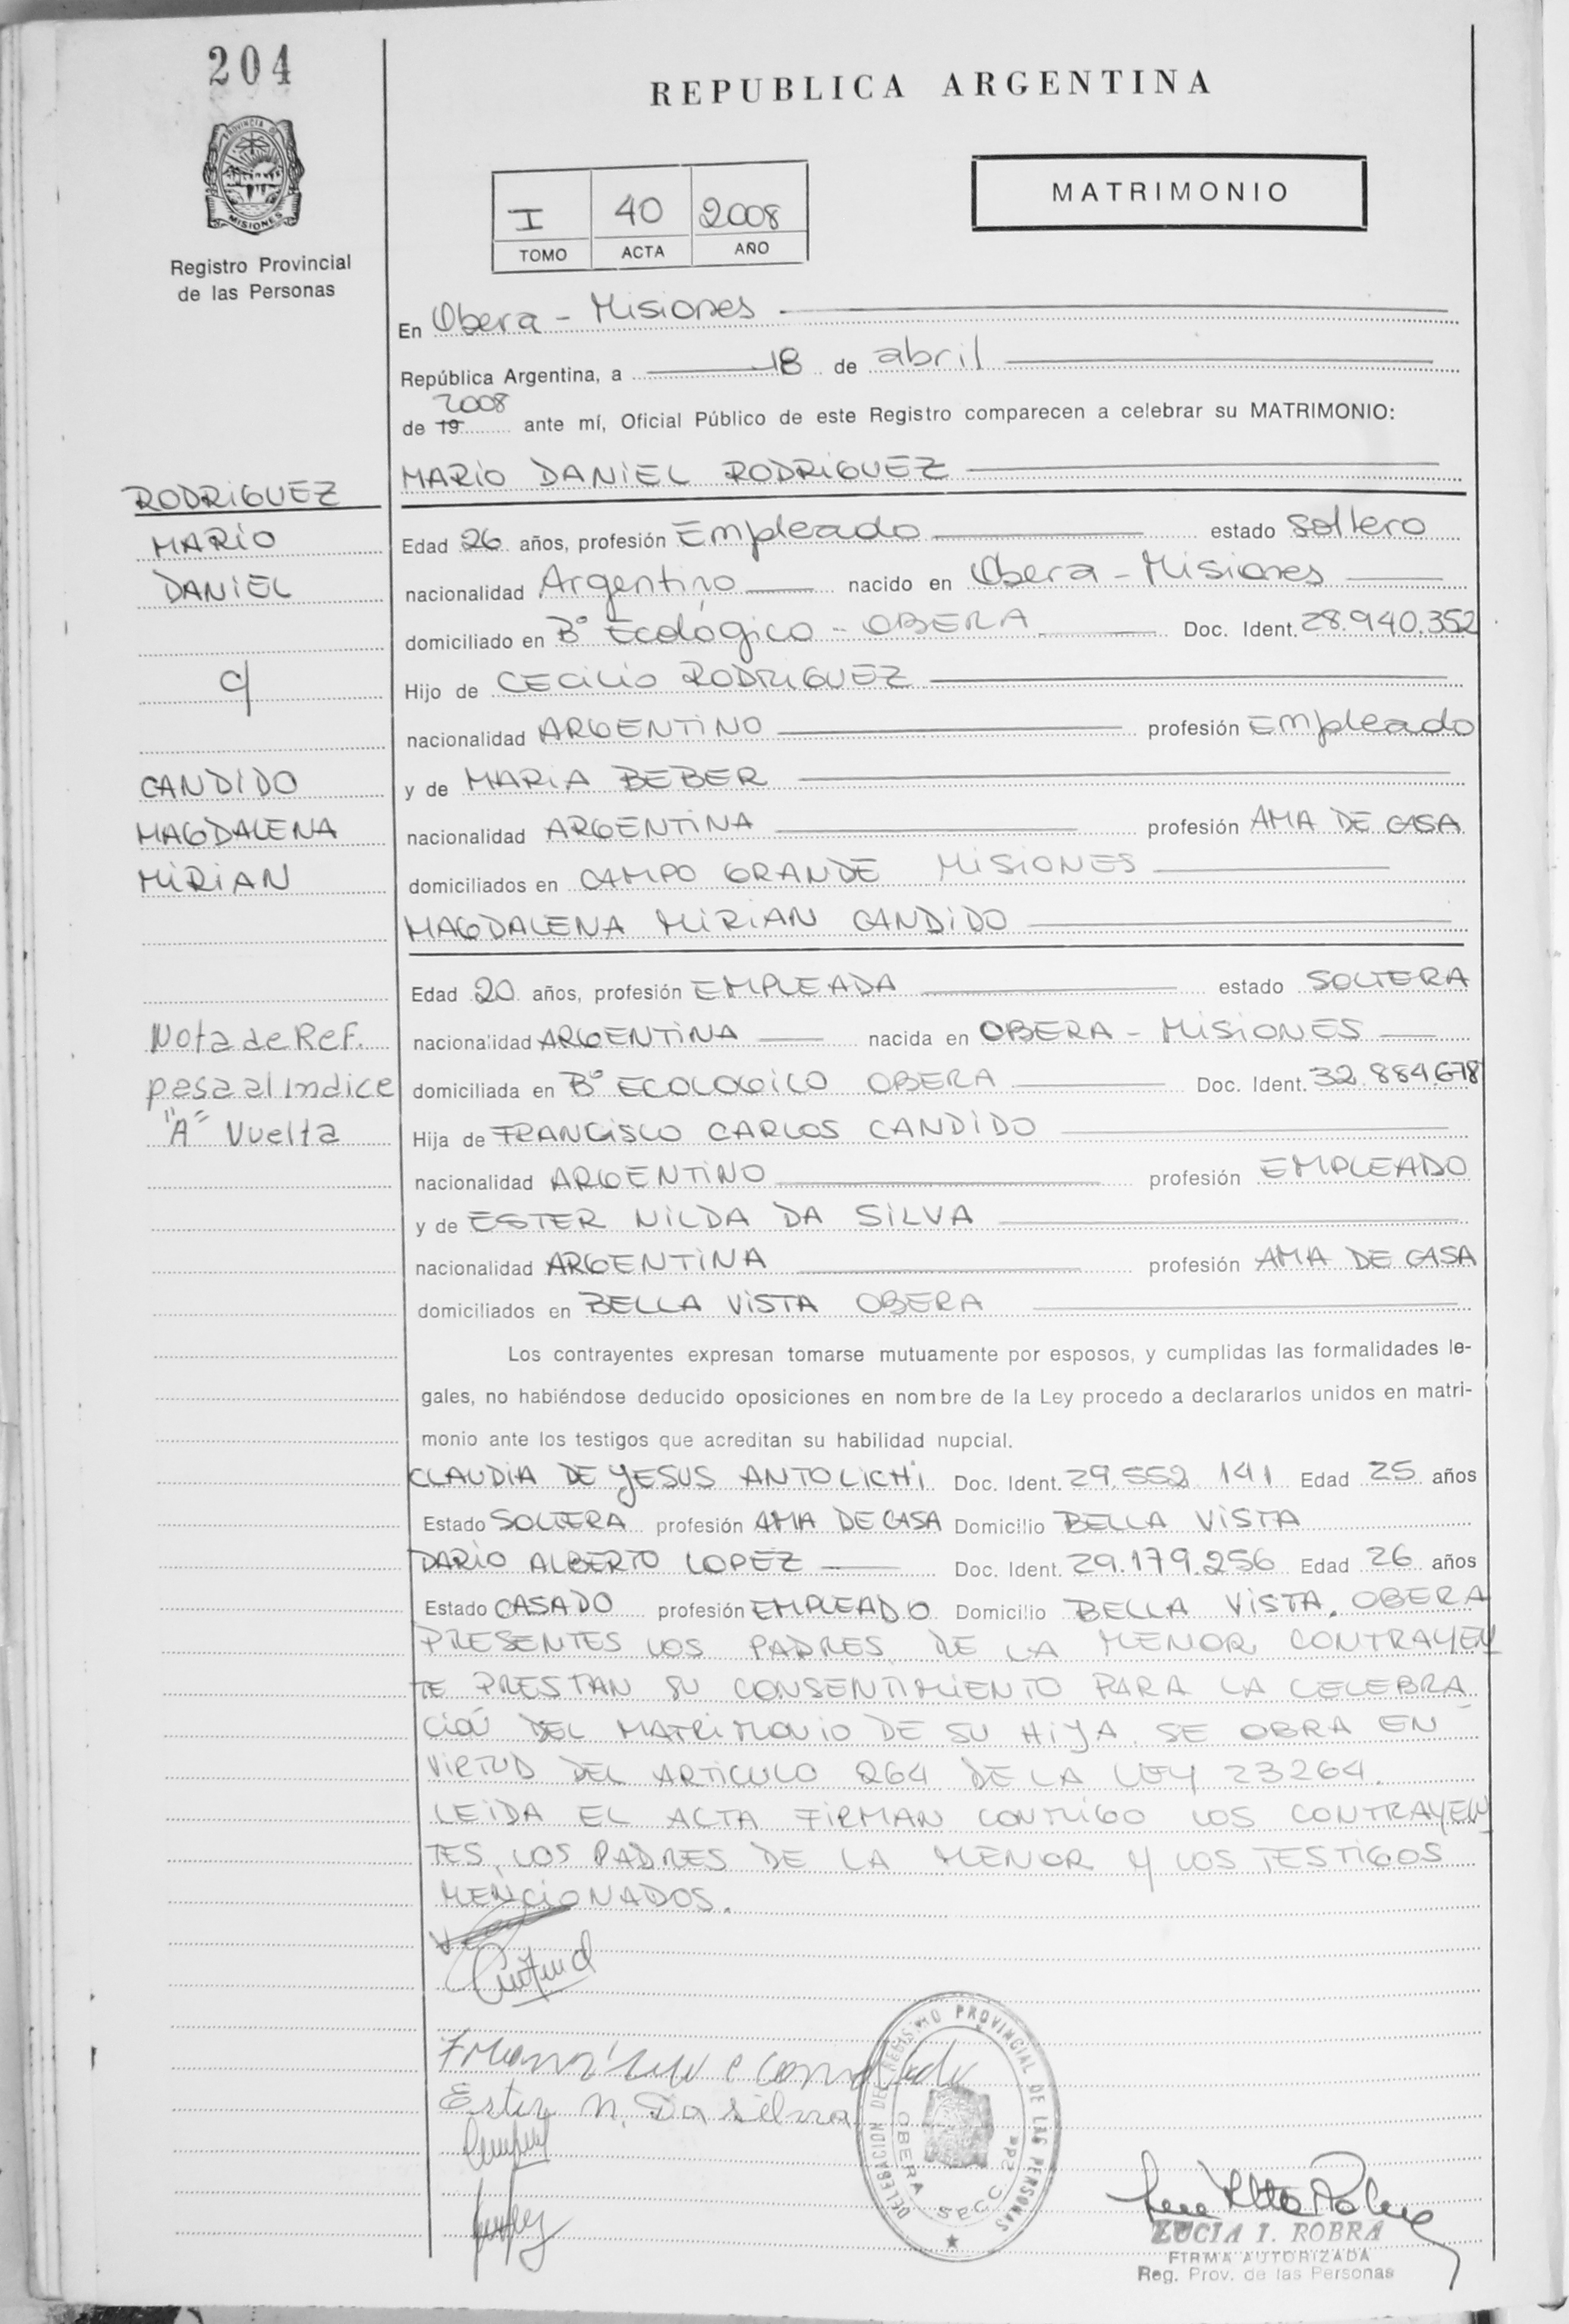 204
REPUBLICA ARGENTINA
PROVINCIA DE
MISIONES
Registro Provincial
de las Personas
I 40 2008
TOMO ACTA AÑO
MATRIMONIO
En Obera - Misiones
República Argentina, a 18 de abril
2008
de 19 ante mí, Oficial Público de este Registro comparecen a celebrar su MATRIMONIO:
MARIO DANIEL RODRIGUEZ
RODRIGUEZ
MARIO
DANIEL
c/
CANDIDO
MAGDALENA
MIRIAN
Edad 26 años, profesión Empleado estado soltero
nacionalidad Argentino nacido en Obera - Misiones
domiciliado en Bº Ecológico - OBERA Doc. Ident. 28.940.352
Hijo de CECILIO RODRIGUEZ
nacionalidad ARGENTINO profesión Empleado
y de MARIA BEBER
nacionalidad ARGENTINA profesión AMA DE CASA
domiciliados en CAMPO GRANDE MISIONES
MAGDALENA MIRIAN CANDIDO
Nota de Ref.
pasa al Indice
"A" Vuelta
Edad 20 años, profesión EMPLEADA estado SOLTERA
nacionalidad ARGENTINA nacida en OBERA - MISIONES
domiciliada en Bº ECOLOGICO OBERA Doc. Ident. 32.884.678
Hija de FRANCISCO CARLOS CANDIDO
nacionalidad ARGENTINO profesión EMPLEADO
y de ESTER NILDA DA SILVA
nacionalidad ARGENTINA profesión AMA DE CASA
domiciliados en BELLA VISTA OBERA
Los contrayentes expresan tomarse mutuamente por esposos, y cumplidas las formalidades le-
gales, no habiéndose deducido oposiciones en nombre de la Ley procedo a declararlos unidos en matri-
monio ante los testigos que acreditan su habilidad nupcial.
CLAUDIA DE JESUS ANTOLICHI Doc. Ident. 29.552.141 Edad 25 años
Estado SOLTERA profesión AMA DE CASA Domicilio BELLA VISTA
DARIO ALBERTO LOPEZ Doc. Ident. 29.179.256 Edad 26 años
Estado CASADO profesión EMPLEADO Domicilio BELLA VISTA. OBERA
PRESENTES LOS PADRES DE LA MENOR CONTRAYEN
TE PRESTAN SU CONSENTIMIENTO PARA LA CELEBRA
CIÓN DEL MATRIMONIO DE SU HIJA. SE OBRA EN
VIRTUD DEL ARTICULO 264 DE LA LEY 23264.
LEIDA EL ACTA FIRMAN CONMIGO LOS CONTRAYEN
TES, LOS PADRES DE LA MENOR Y LOS TESTIGOS
MENCIONADOS.
Ester N. Da silva
DELEGACION DEL REGISTRO PROVINCIAL DE LAS PERSONAS
OBERA SECC. 2da
LUCIA I. ROBRA
FIRMA AUTORIZADA
Reg. Prov. de las Personas